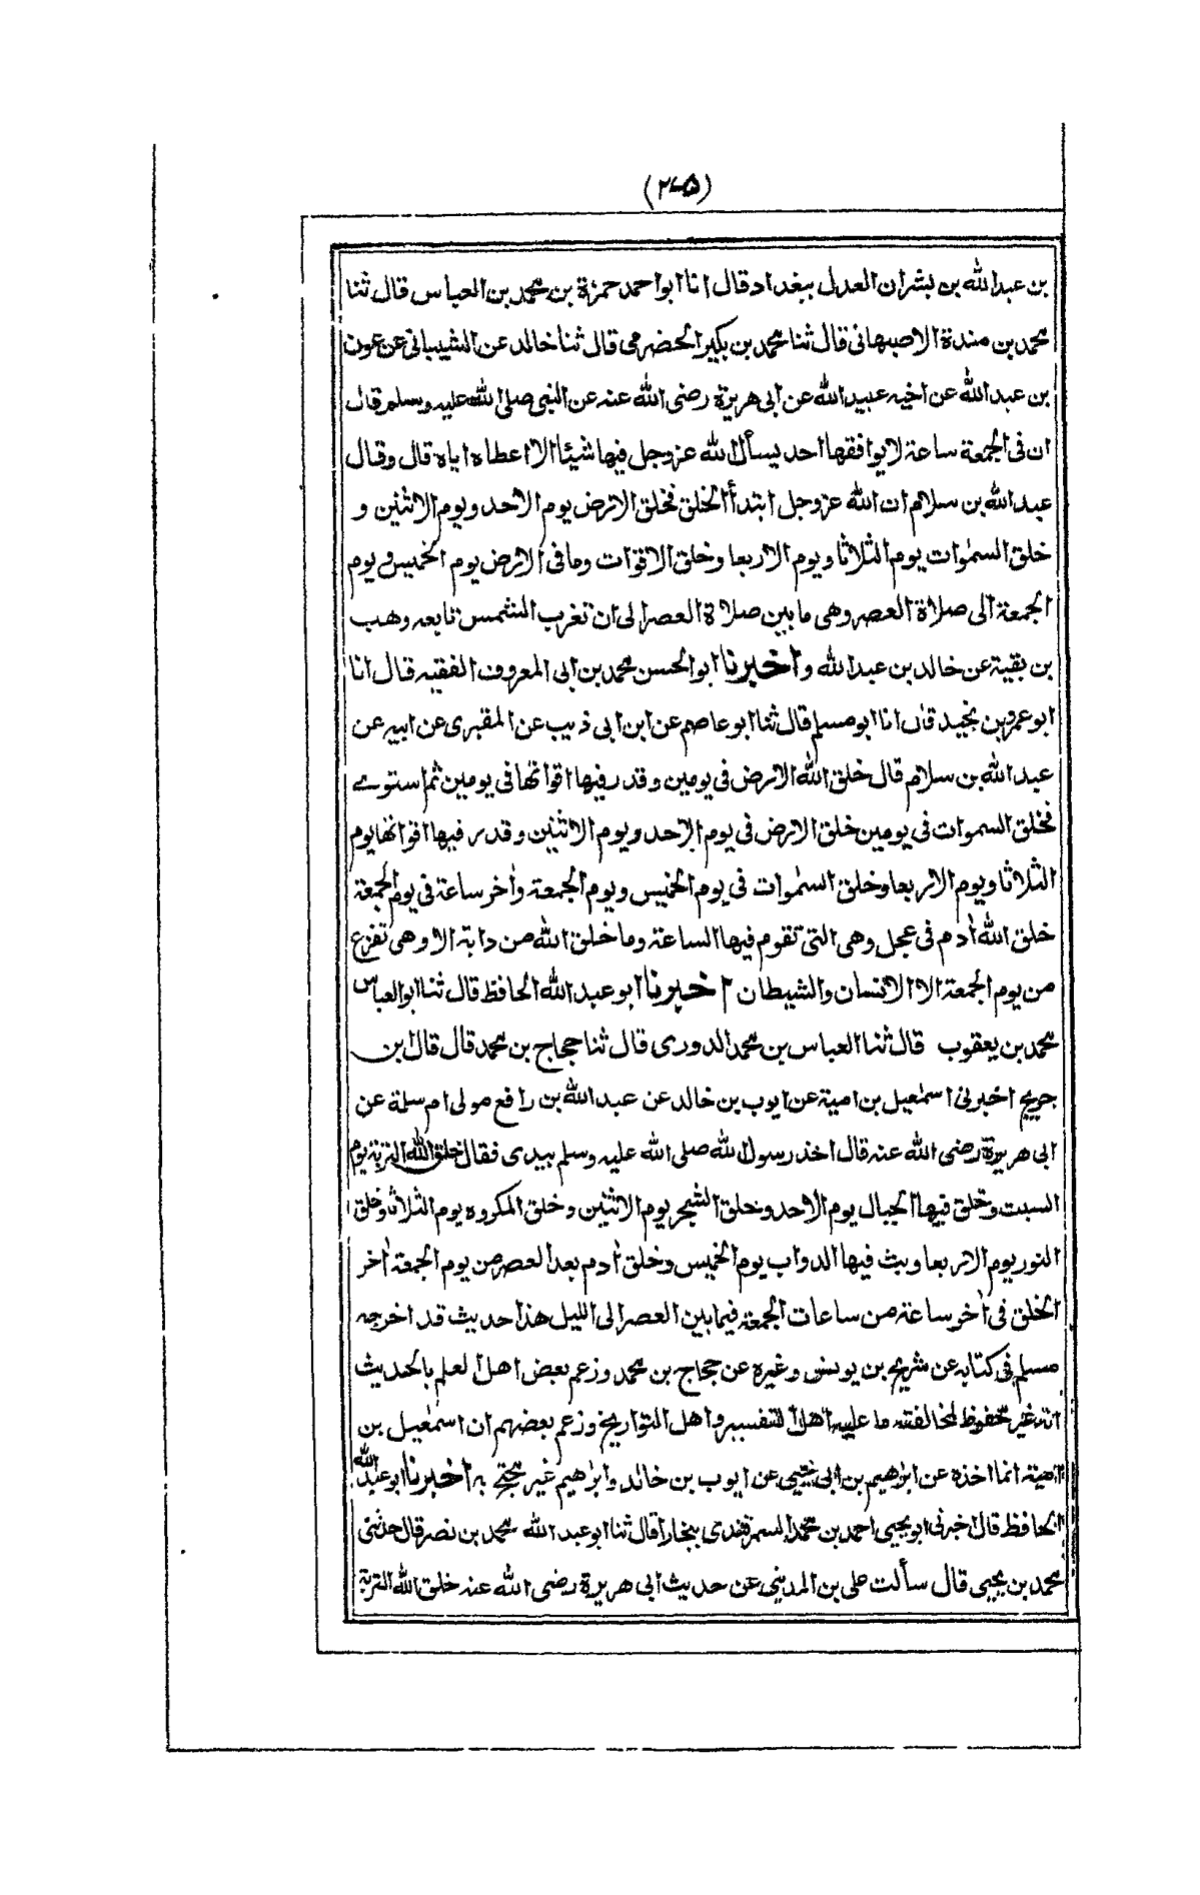 (٢٧٥)
بن عبدالله بن بشران العدل ببغداد قال انا ابو احمد حمزة بن محمد بن العباس قال ثنا
محمد بن مندة الاصبهانى قال ثنا محمد بن بكير الحضرمى قال ثنا خالد عن الشيبانى عن عون
بن عبدالله عن اخيه عبيد الله عن ابى هريرة رضى الله عنه عن النبى صلى الله عليه وسلم قال
ان فى الجمعة ساعة لا يوافقها احد يسأل الله عز وجل فيها شيئا الا اعطاه اياه قال وقال
عبد الله بن سلام ان الله عز وجل ابتدأ الخلق فخلق الارض يوم الاحد ويوم الاثنين و
خلق السمٰوات يوم الثلاثا ويوم الاربعا وخلق الاقوات وما فى الارض يوم الخميس ويوم
الجمعة الى صلاة العصر وهى ما بين صلاة العصر الى ان تغرب الشمس تابعه وهب
بن بقية عن خالد بن عبد الله واخبرنا ابو الحسن محمد بن ابى المعروف الفقيه قال انا
ابو عمرو بن نجيد قال انا ابو مسلم قال ثنا ابو عاصم عن ابن ابى ذيب عن المقبرى عن ابيه عن
عبد الله بن سلام قال خلق الله الارض فى يومين وقدر فيها اقواتها فى يومين ثم استوے
فخلق السموات فى يومين خلق الارض فى يوم الاحد ويوم الاثنين وقدر فيها اقواتها يوم
الثلاثا ويوم الاربعا وخلق السمٰوات فى يوم الخميس ويوم الجمعة واٰخر ساعة فى يوم الجمعة
خلق الله اٰدم فى عجل وهى التى تقوم فيها الساعة وما خلق الله من دابة الا وهى تفزع
من يوم الجمعة الا الانسان والشيطان اخبرنا ابو عبد الله الحافظ قال ثنا ابو العباس
محمد بن يعقوب قال ثنا العباس بن محمد الدورى قال ثنا حجاج بن محمد قال قال ابن
جريج اخبرنى اسمٰعيل بن امية عن ايوب بن خالد عن عبد الله بن رافع مولى ام سلمة عن
ابى هريرة رضى الله عنه قال اخذ رسول الله صلى الله عليه وسلم بيدى فقال خلق الله التربة يوم
السبت وخلق فيها الجبال يوم الاحد وخلق الشجر يوم الاثنين وخلق المكروه يوم الثلاثا وخلق
النور يوم الاربعا وبث فيها الدواب يوم الخميس وخلق اٰدم بعد العصر من يوم الجمعة اٰخر
الخلق فى اٰخر ساعة من ساعات الجمعة فيما بين العصر الى الليل هذا حديث قد اخرجه
مسلم فى كتابه عن شريح بن يونس وغيره عن حجاج بن محمد وزعم بعض اهل العلم بالحديث
انه غير محفوظ لمخالفته ما عليه اهل التفسير واهل التواريخ وزعم بعضهم ان اسمٰعيل بن
امية انما اخذه عن ابرٰهيم بن ابى يحيى عن ايوب بن خالد وابرٰهيم غير محتج به اخبرنا ابو عبد الله
الحافظ قال اخبرنى ابو يحيى احمد بن محمد السمرقندى ببخارا قال ثنا ابو عبد الله محمد بن نصر قال حدثنى
محمد بن يحيى قال سألت على بن المدينى عن حديث ابى هريرة رضى الله عنه خلق الله التربة